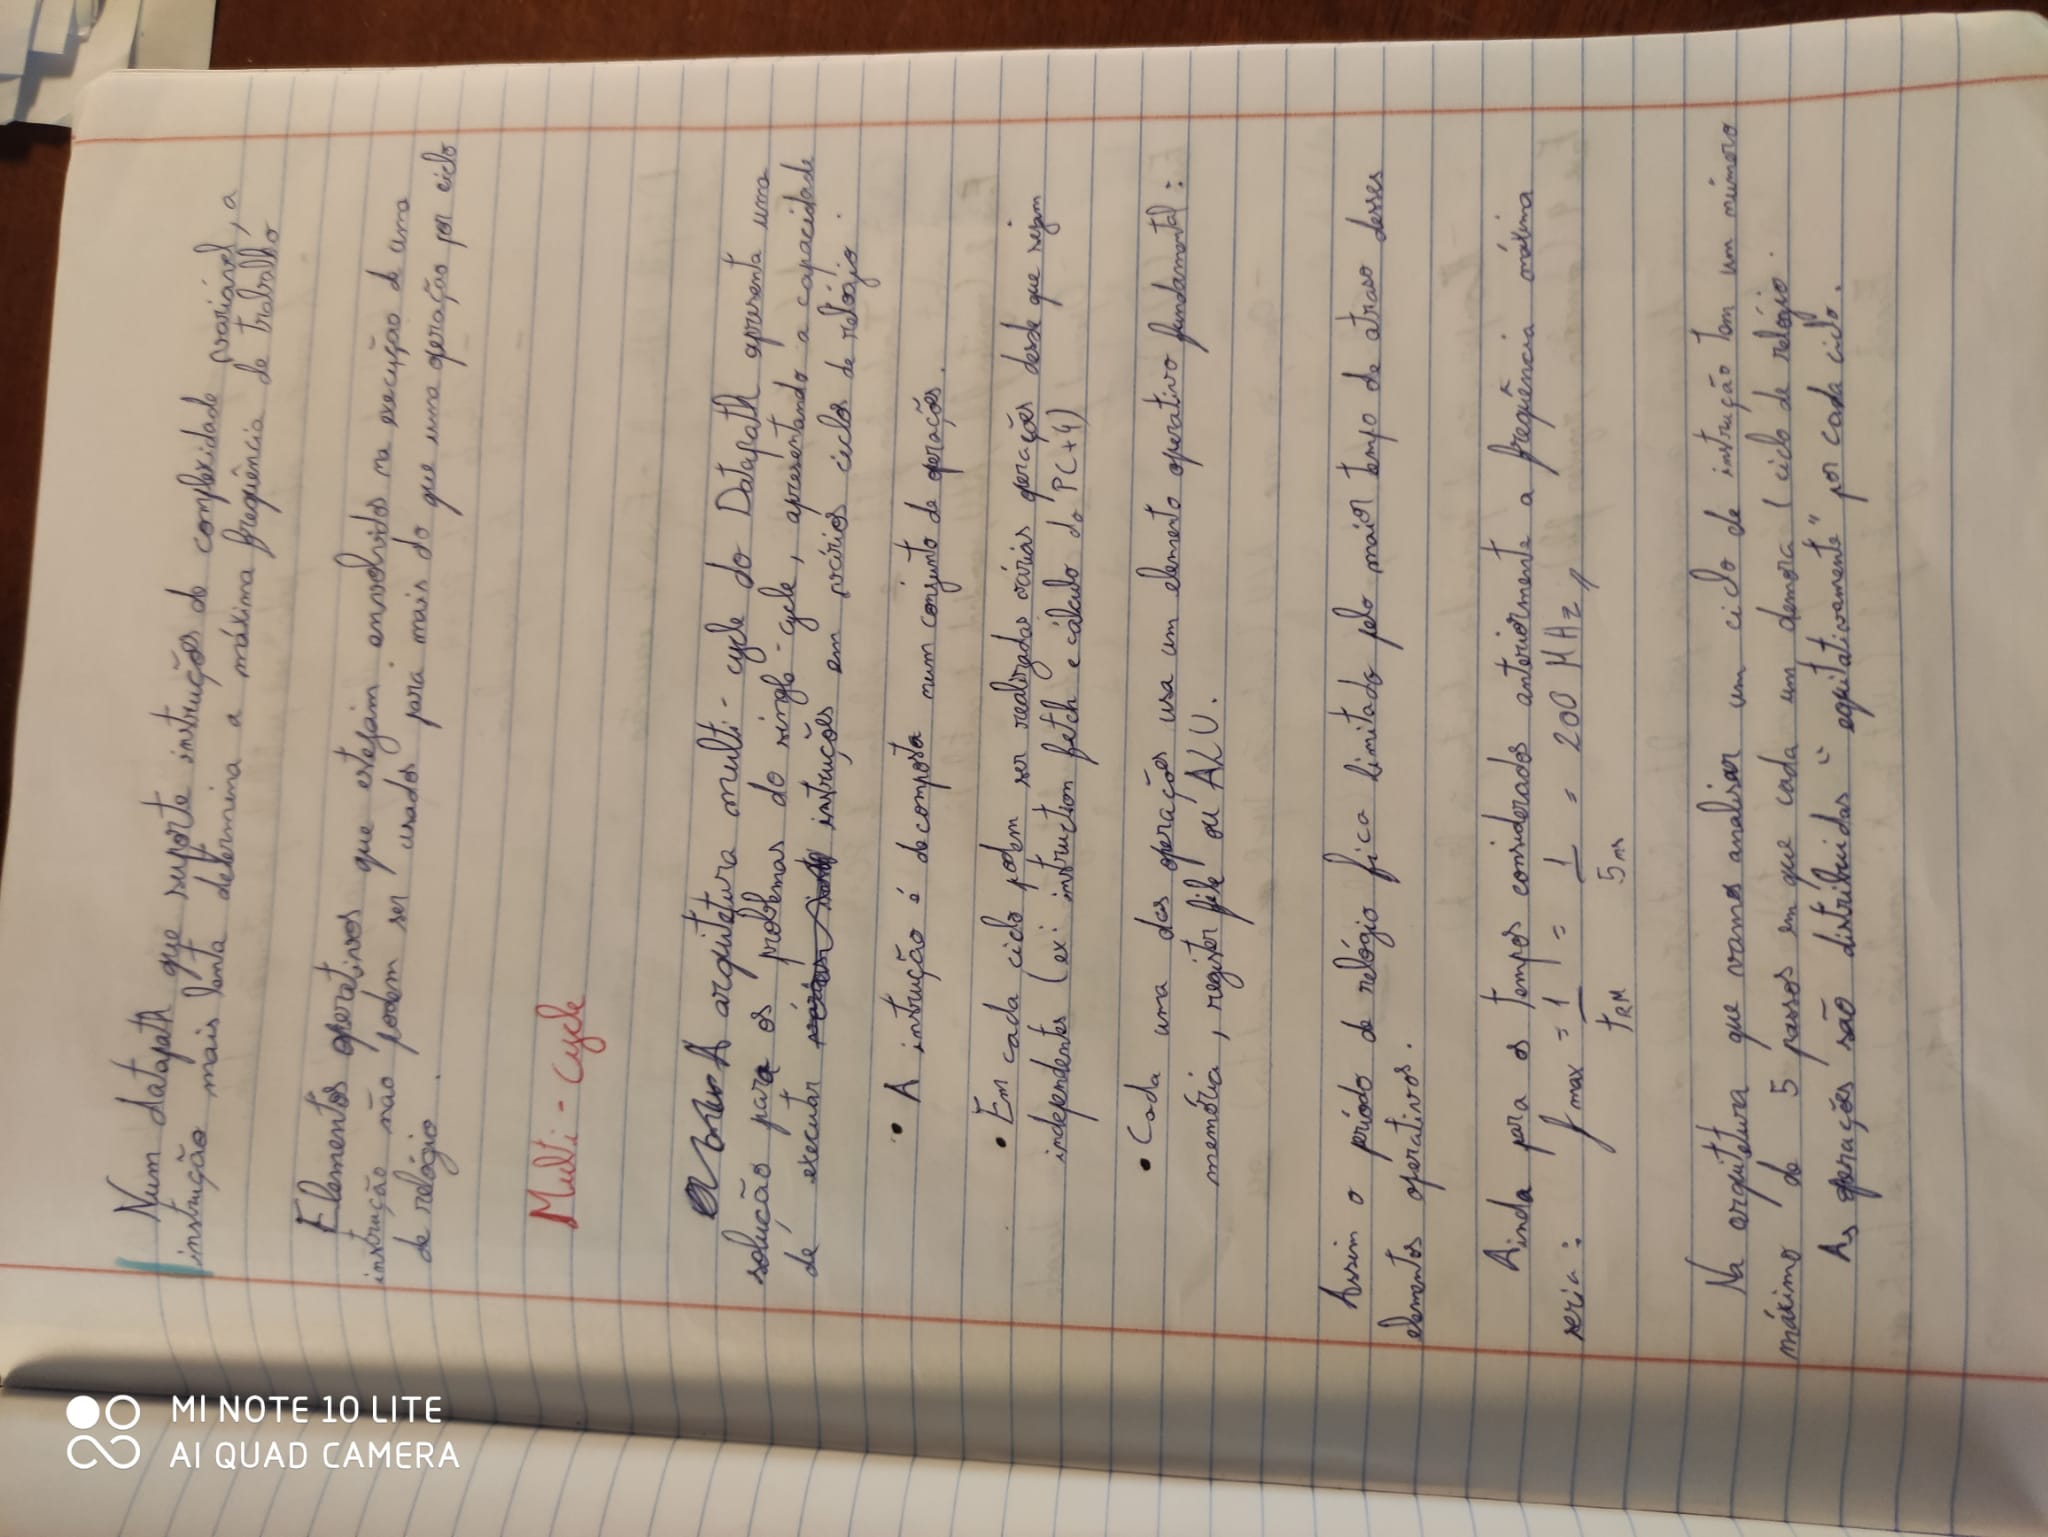 Num datapath que suporte instruções de complexidade variável, a
instrução mais lenta determina a máxima frequência de trabalho
Elementos operativos que estejam envolvidos na execução de uma
instrução não podem ser usados para mais do que uma operação por ciclo
de relógio.
Multi-cycle
A arquitetura multi-cycle do Datapath apresenta uma
solução para os problemas do single-cycle, apresentando a capacidade
de executar instruções em vários ciclos de relógio.
• A instrução é decomposta num conjunto de operações.
• Em cada ciclo podem ser realizadas várias operações desde que sejam
independentes (ex: instruction fetch e cálculo do PC+4)
• Cada uma das operações usa um elemento operativo fundamental:
memória, register file ou ALU.
Assim o período de relógio fica limitado pelo maior tempo de atraso desses
elementos operativos.
Ainda para os tempos considerados anteriormente a frequência máxima
seria: f max = 1/tRM = 1/5ns = 200 MHz //
Na arquitetura que vamos analisar um ciclo de instrução tem um número
máximo de 5 passos em que cada um demora 1 ciclo de relógio.
As operações são distribuidas "equitativamente" por cada ciclo.
MI NOTE 10 LITE
AI QUAD CAMERA